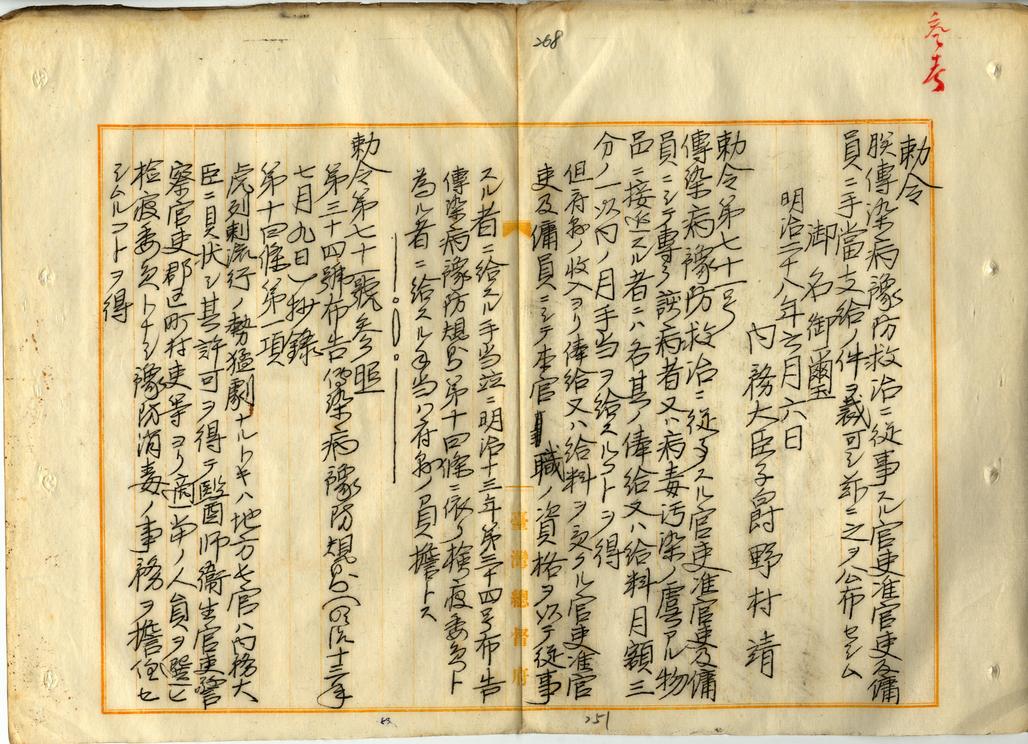 參考
勅令
朕傳染病豫防救治ニ從事スル官吏准官吏及傭
員ニ手當支給ノ件ヲ裁可シ茲ニ之ヲ公布セシム
御名御璽
明治二十八年六月六日
內務大臣子爵野村靖
勅令第七十一号
傳染病豫防救治ニ從事スル官吏准官吏及傭
員ニシテ專ラ該病者又ハ病毒汚染ノ虞アル物
品ニ接近スル者ニハ各其ノ俸給又ハ給料月額三
分ノ一以內ノ月手当ヲ給スルコトヲ得
但府縣ノ收入ヨリ俸給又ハ給料ヲ受クル官吏准官
吏及傭員ニシテ本官職ノ資格ヲ以テ從事
スル者ニ給スル手当竝ニ明治十三年第三十四号布告
傳染病豫防規則第十四條ニ依リ檢疫委員ト
為ル者ニ給スル手当ハ府縣ノ負擔トス
勅令第七十一號參照
第三十四號布告傳染病豫防規則(明治十三年
七月九日)抄錄
第十四條第一項
虎列剌流行ノ勢猛劇ナルトキハ地方長官ハ內務大
臣ニ具狀シ其許可ヲ得テ醫師衞生官吏警
察官吏郡区町村吏等ヨリ適当ノ人員ヲ選ヒ
檢疫委員トナシ豫防消毒ノ事務ヲ擔任セ
シムルコトヲ得
臺灣總督府
268
251